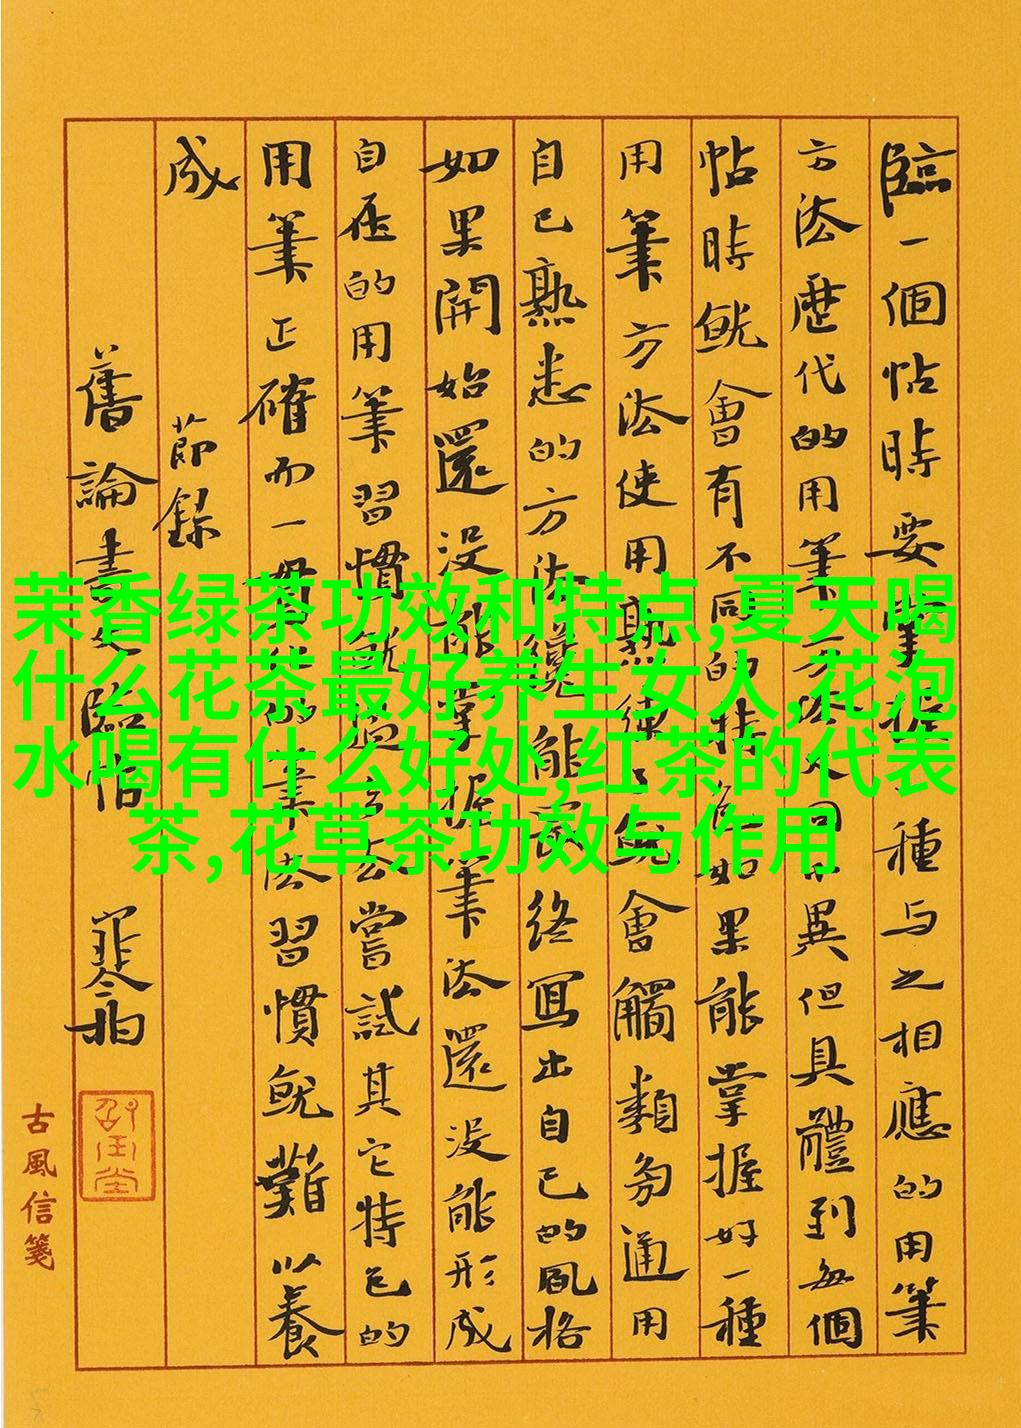 臨一個帖時要掌握種与之相應的用筆
方法歷代的用筆方法大同小異但具體到每個
帖時就會有不同的特如果能掌握好一種
用筆方法使用熟練了就會觸類旁通用
自己熟悉的方法纔能最終寫出自己的風格
如果開始還没能掌握筆法還没能形成
自在的用筆習慣就去嘗試其它特色的
用筆正確而一的筆法習慣就難以養
成 節錄
舊論書之臨帖
古風信箋
茉香绿茶功效和特点,夏天喝
什么花茶最好养生女人,花泡
水喝有什么好处,红茶的代表
茶,花草茶功效与作用